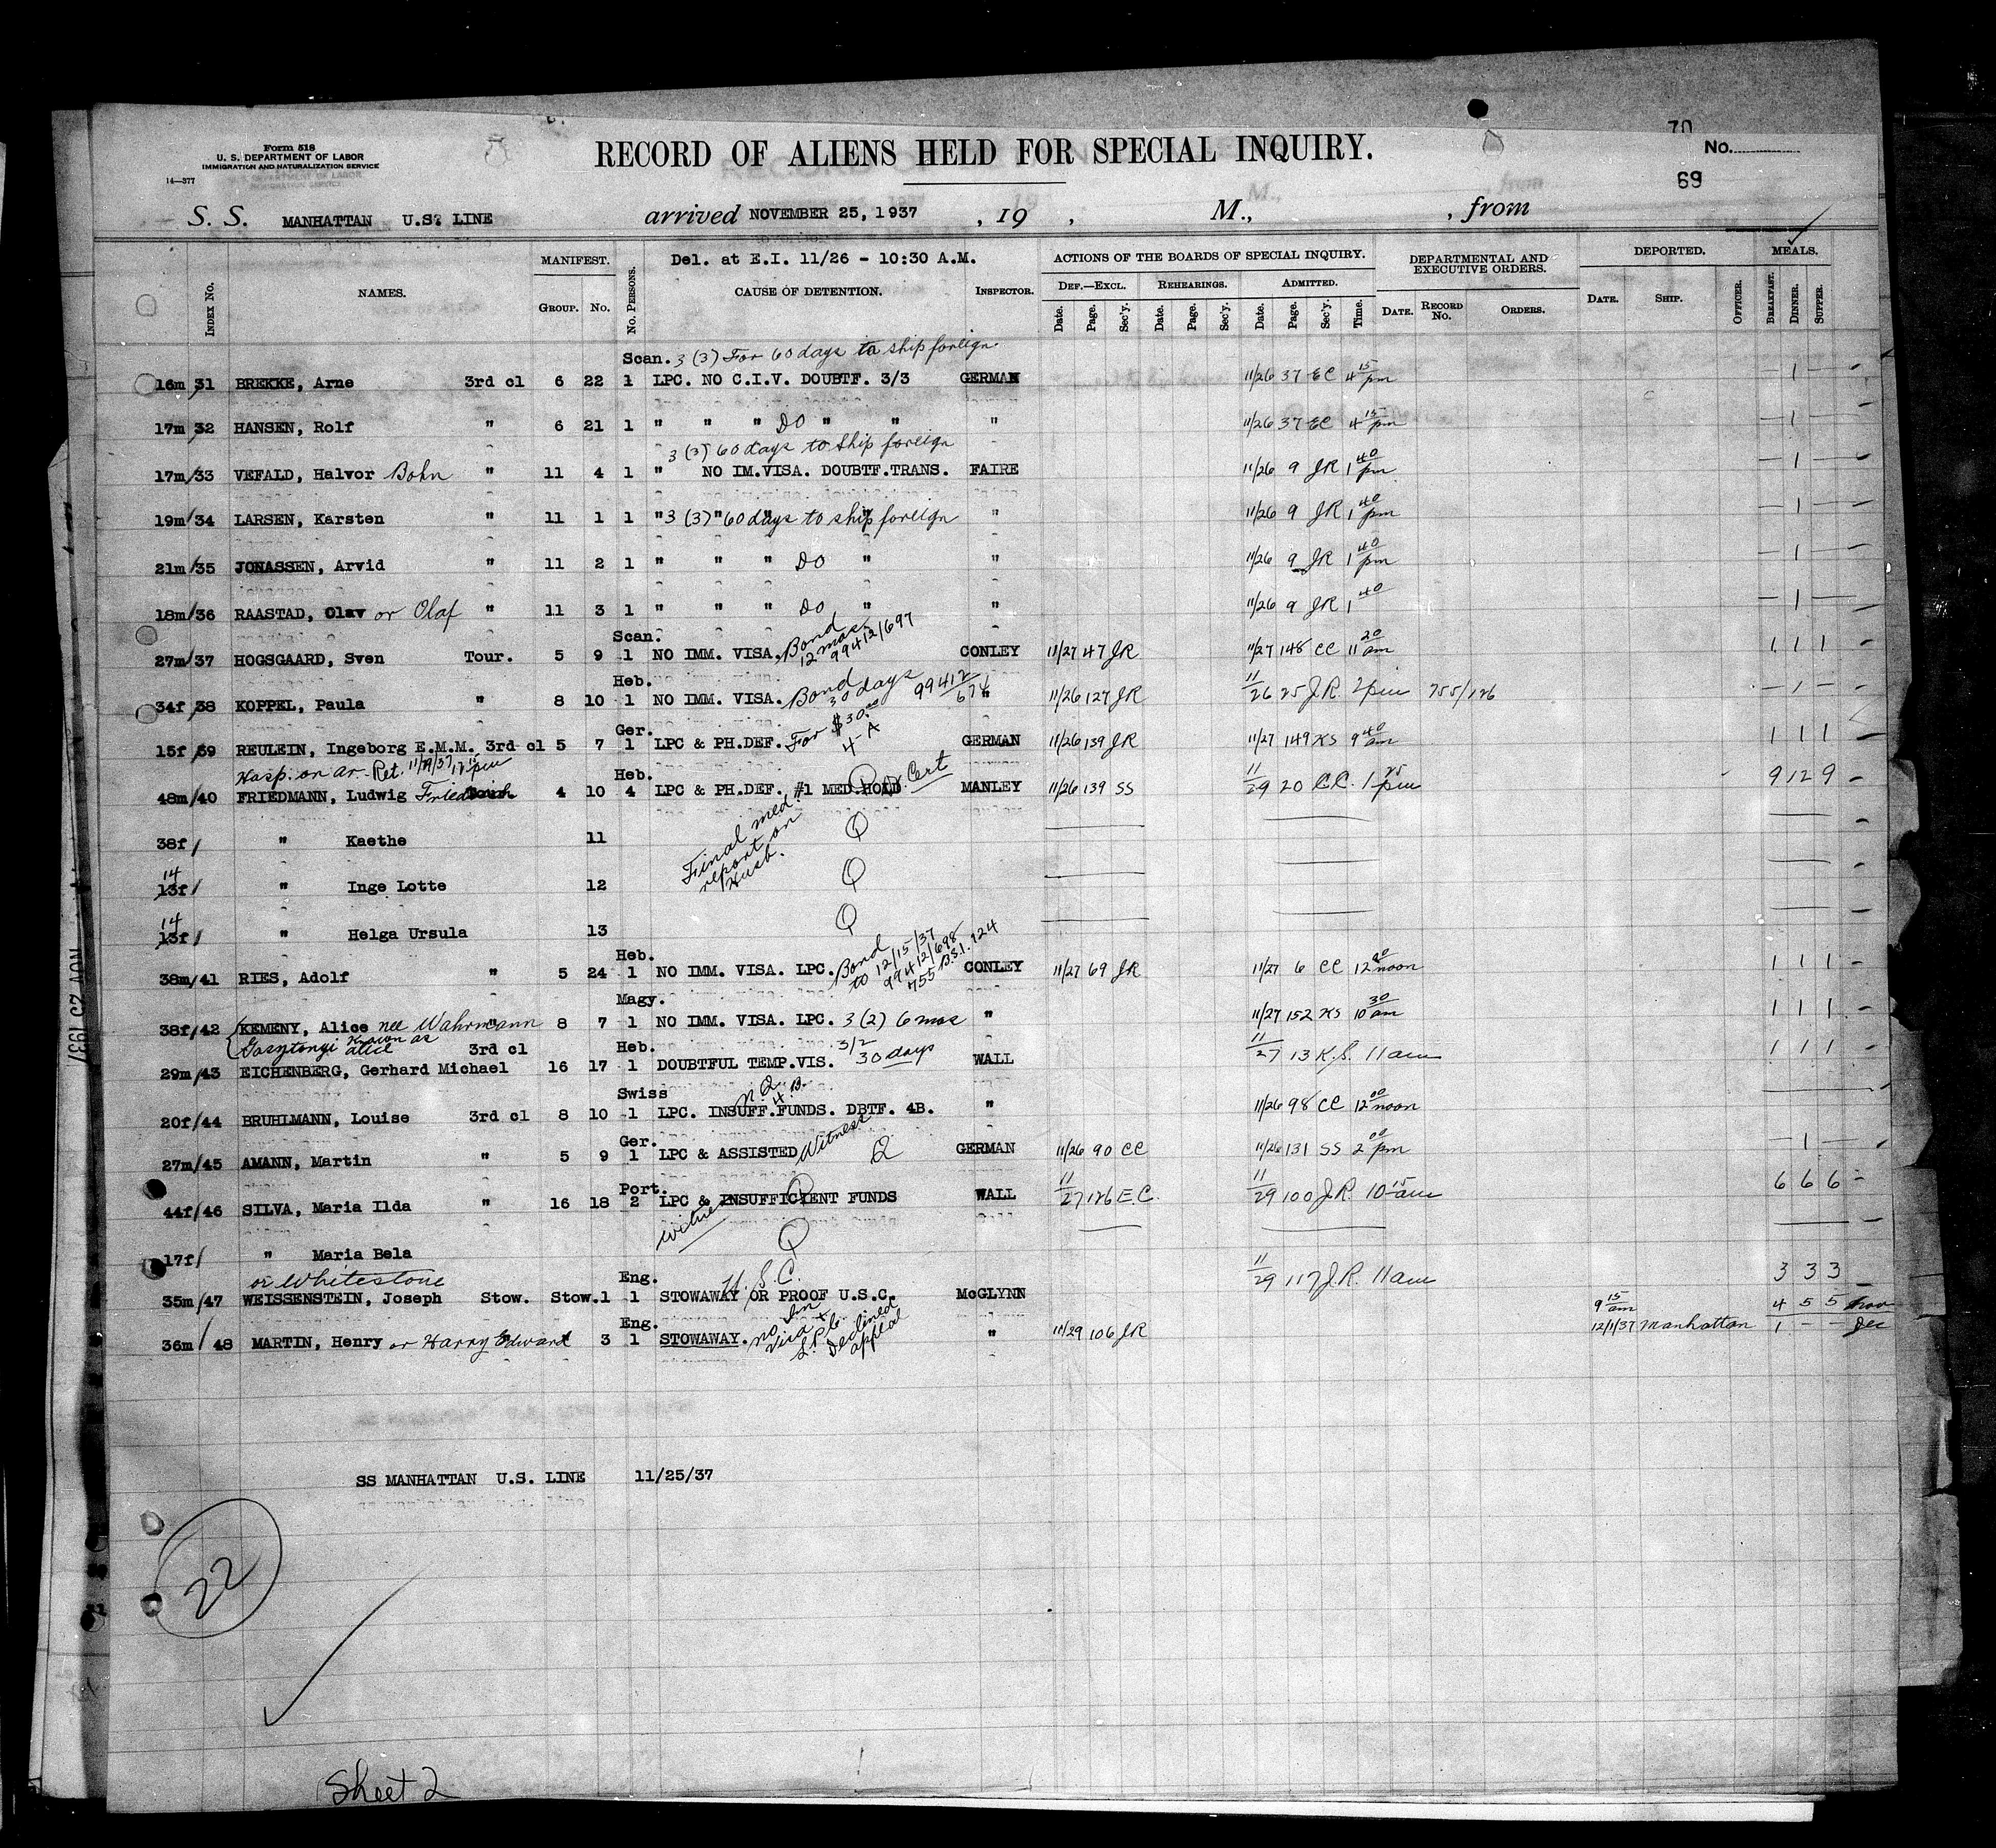 Form 518
U. S. DEPARTMENT OF LABOR
IMMIGRATION AND NATURALIZATION SERVICE
14—377
RECORD OF ALIENS HELD FOR SPECIAL INQUIRY.
70
No.
69
S. S. MANHATTAN U.S. LINE arrived NOVEMBER 25, 1937 , 19 , M., , from
INDEX No. NAMES. MANIFEST. GROUP. No. No. PERSONS. Del. at E.I. 11/26 - 10:30 A.M. CAUSE OF DETENTION. INSPECTOR. ACTIONS OF THE BOARDS OF SPECIAL INQUIRY. DEF.—EXCL. Date. Page. Sec'y. REHEARINGS. Date. Page. Sec'y. ADMITTED. Date. Page. Sec'y. Time. DEPARTMENTAL AND EXECUTIVE ORDERS. DATE. RECORD No. ORDERS. DEPORTED. DATE. SHIP. OFFICER. MEALS. BREAKFAST. DINNER. SUPPER.
Scan. 3 (3) For 60 days to ship foreign
16m/31 BREKKE, Arne 3rd cl 6 22 1 LPC. NO C.I.V. DOUBTF. 3/3 GERMAN 11/26 37 EC 4 15 pm — 1 — -
17m/32 HANSEN, Rolf " 6 21 1 " " " DO " " " 11/26 37 EC 4 15 pm — 1 — -
3 (3) 60 days to ship foreign
17m/33 VEFALD, Halvor Bohn " 11 4 1 " NO IM.VISA. DOUBTF.TRANS. FAIRE 11/26 9 JR 1 40 pm — 1 — -
19m/34 LARSEN, Karsten " 11 1 1 " 3 (3) " 60 days to ship foreign " 11/26 9 JR 1 40 pm — 1 — -
21m/35 JONASSEN, Arvid " 11 2 1 " " " DO " " 11/26 9 JR 1 40 pm — 1 — -
18m/36 RAASTAD, Olav or Olaf " 11 3 1 " " " DO " " 11/26 9 JR 1 40 — 1 — -
Scan.
27m/37 HOGSGAARD, Sven Tour. 5 9 1 NO IMM. VISA. Bond 12 mos. 99412/697 CONLEY 11/27 47 JR 11/27 148 CC 11 20 am 1 1 1 -
Heb.
34f/38 KOPPEL, Paula " 8 10 1 NO IMM. VISA. Bond 30 days 99412/674 " 11/26 127 JR 11/26 25 J.R. 2 pm 755/126 — 1 — -
Ger. For $30.00
15f/39 REULEIN, Ingeborg E.M.M. 3rd cl 5 7 1 LPC & PH.DEF. 4-A GERMAN 11/26 139 JR 11/27 149 KS 9 40 am 1 1 1
Hosp. on ar. Ret. 11/29/37, 12 15 pm
Heb.
48m/40 FRIEDMANN, Ludwig 4 10 4 LPC & PH.DEF. #1 MED.HOLD Cert MANLEY 11/26 139 SS 11/29 20 CC. 1 25 pm 9 12 9 -
38f/ " Kaethe 11 Q
Final med. report on Husb.
14
13f/ " Inge Lotte 12 Q
14
13f/ " Helga Ursula 13 Q
Heb.
38m/41 RIES, Adolf " 5 24 1 NO IMM. VISA. LPC. Bond to 12/15/37 99412/698 755 B.S.I. 124 CONLEY 11/27 69 JR 11/27 6 CC 12 00 noon 1 1 1 -
Magy.
38f/42 KEMENY, Alice nee Wahrmann " 8 7 1 NO IMM. VISA. LPC. 3 (2) 6 mos " 11/27 152 KS 10 30 am 1 1 1 -
known as Alice
3rd cl Heb. 3/2 30 days
29m/43 EICHENBERG, Gerhard Michael 16 17 1 DOUBTFUL TEMP.VIS. WALL 11/27 13 K.S. 11 am 1 1 1 -
Swiss
20f/44 BRUHLMANN, Louise 3rd cl 8 10 1 LPC. INSUFF.FUNDS. DBTF. 4B. " 11/26 98 CC 12 00 noon
Ger.
27m/45 AMANN, Martin " 5 9 1 LPC & ASSISTED Witness Q GERMAN 11/26 90 CC 11/26 131 SS 2 00 pm — 1 — -
Port.
44f/46 SILVA, Maria Ilda " 16 18 2 LPC & INSUFFICIENT FUNDS Q WALL 11/27 126 E.C. 11/29 100 J.R. 10 15 am 6 6 6 -
witness
17f/ " Maria Bela Q
or Whitestone
Eng. U.S.C.
35m/47 WEISSENSTEIN, Joseph Stow. Stow.1 1 STOWAWAY OR PROOF U.S.C. McGLYNN 11/29 117 J.R. 11 am 3 3 3 -
Eng.
36m/48 MARTIN, Henry or Harry Edward 3 1 STOWAWAY. no Im Visa + L.P.C. Declined appeal " 11/29 106 JR 9 15 am 12/1/37 Manhattan 4 5 5 Nov 1 - - Dec
NOV 25 1937
SS MANHATTAN U.S. LINE 11/25/37
22
Sheet 2